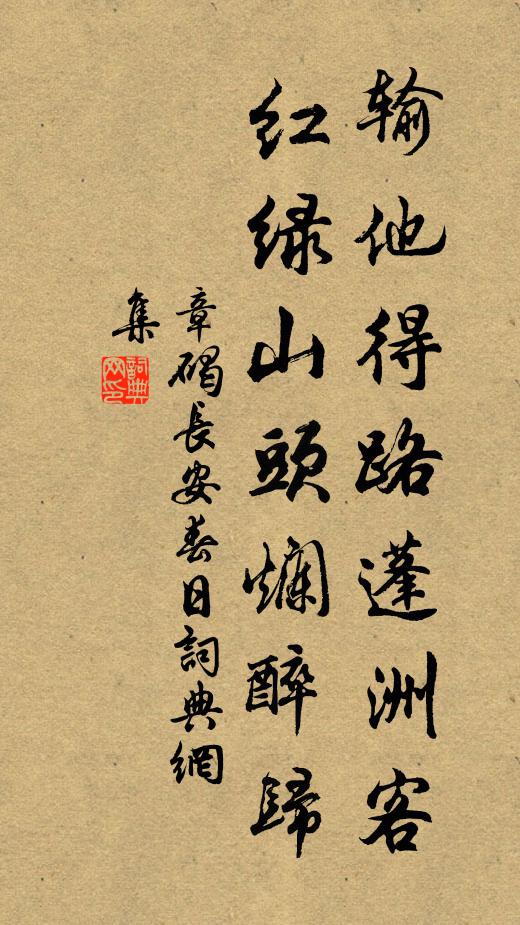 输他得路蓬洲客
红绿山頭爛醉歸
章碣長安春日詞典網
集
詞典
网印